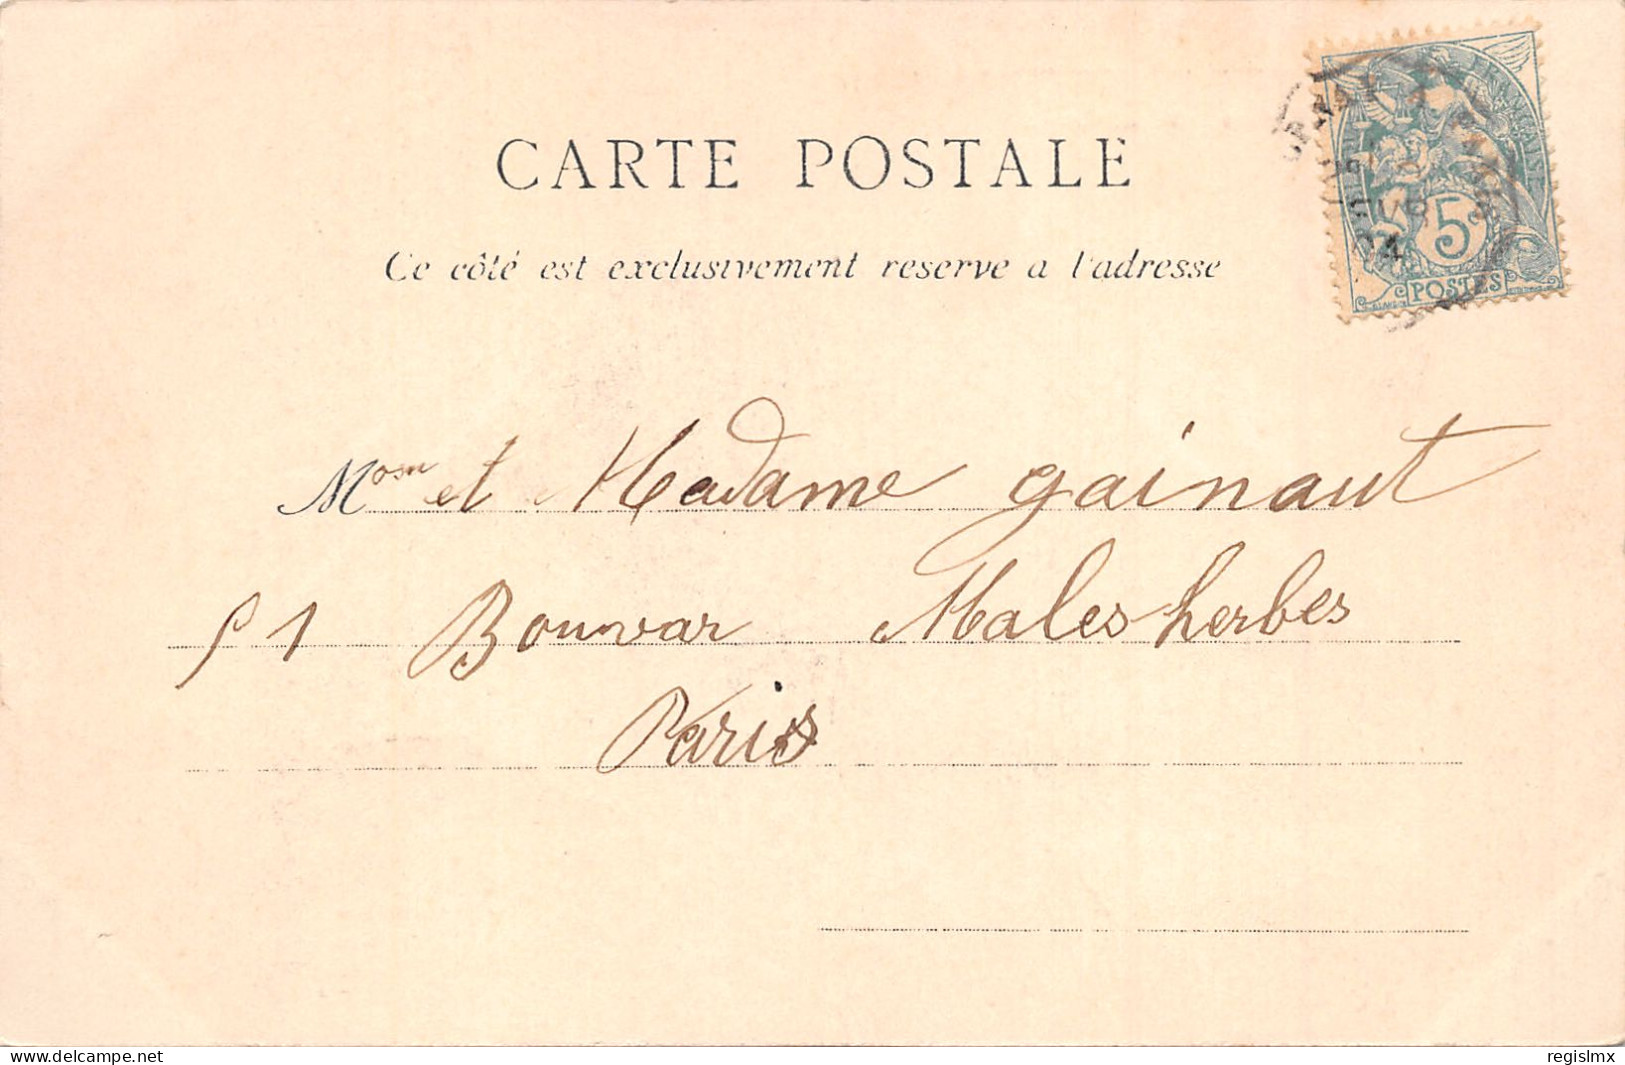 CARTE POSTALE
Ce côté est exclusivement reserve a l'adresse
FRANÇAISE
5c
POSTES
04
Mosm et Madame gainaut
51 Bouvar Malesherbes
Paris
Website: https://www.delcampe.net
regislmx